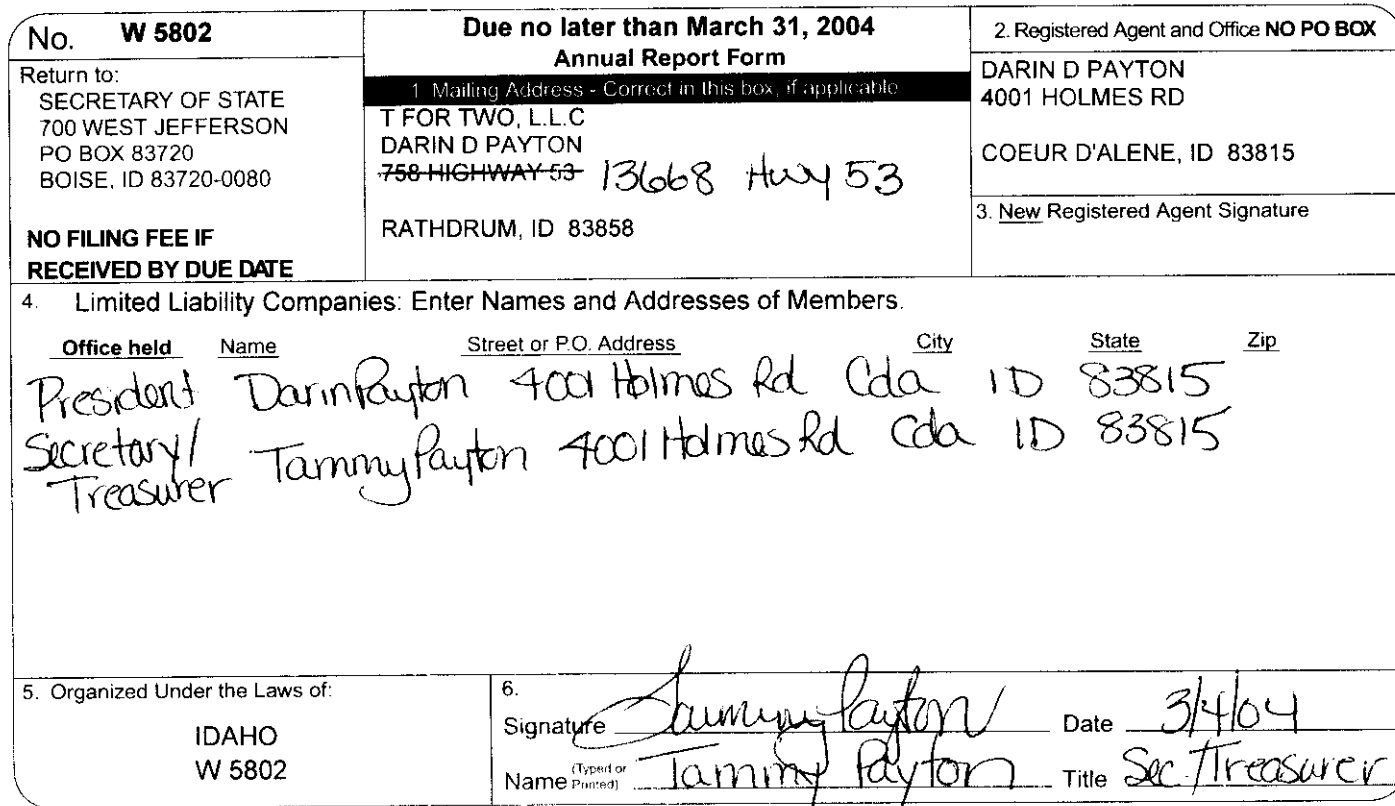 No. W 5802
Return to:
SECRETARY OF STATE
700 WEST JEFFERSON
PO BOX 83720
BOISE, ID 83720-0080
NO FILING FEE IF
RECEIVED BY DUE DATE
Due no later than March 31, 2004
Annual Report Form
1 Mailing Address - Correct in this box, if applicable
T FOR TWO, L.L.C
DARIN D PAYTON
758 HIGHWAY 53 13668 Hwy 53
RATHDRUM, ID 83858
2. Registered Agent and Office NO PO BOX
DARIN D PAYTON
4001 HOLMES RD
COEUR D'ALENE, ID 83815
3. New Registered Agent Signature
4. Limited Liability Companies: Enter Names and Addresses of Members.
Office held Name Street or P.O. Address City State Zip
President Darin Payton 4001 Holmes Rd Cda ID 83815
Secretary/ Tammy Payton 4001 Holmes Rd Cda ID 83815
Treasurer
5. Organized Under the Laws of:
IDAHO
W 5802
6.
Signature Tammy Payton Date 3/4/04
Name (Typed or Printed) Tammy Payton Title Sec./Treasurer